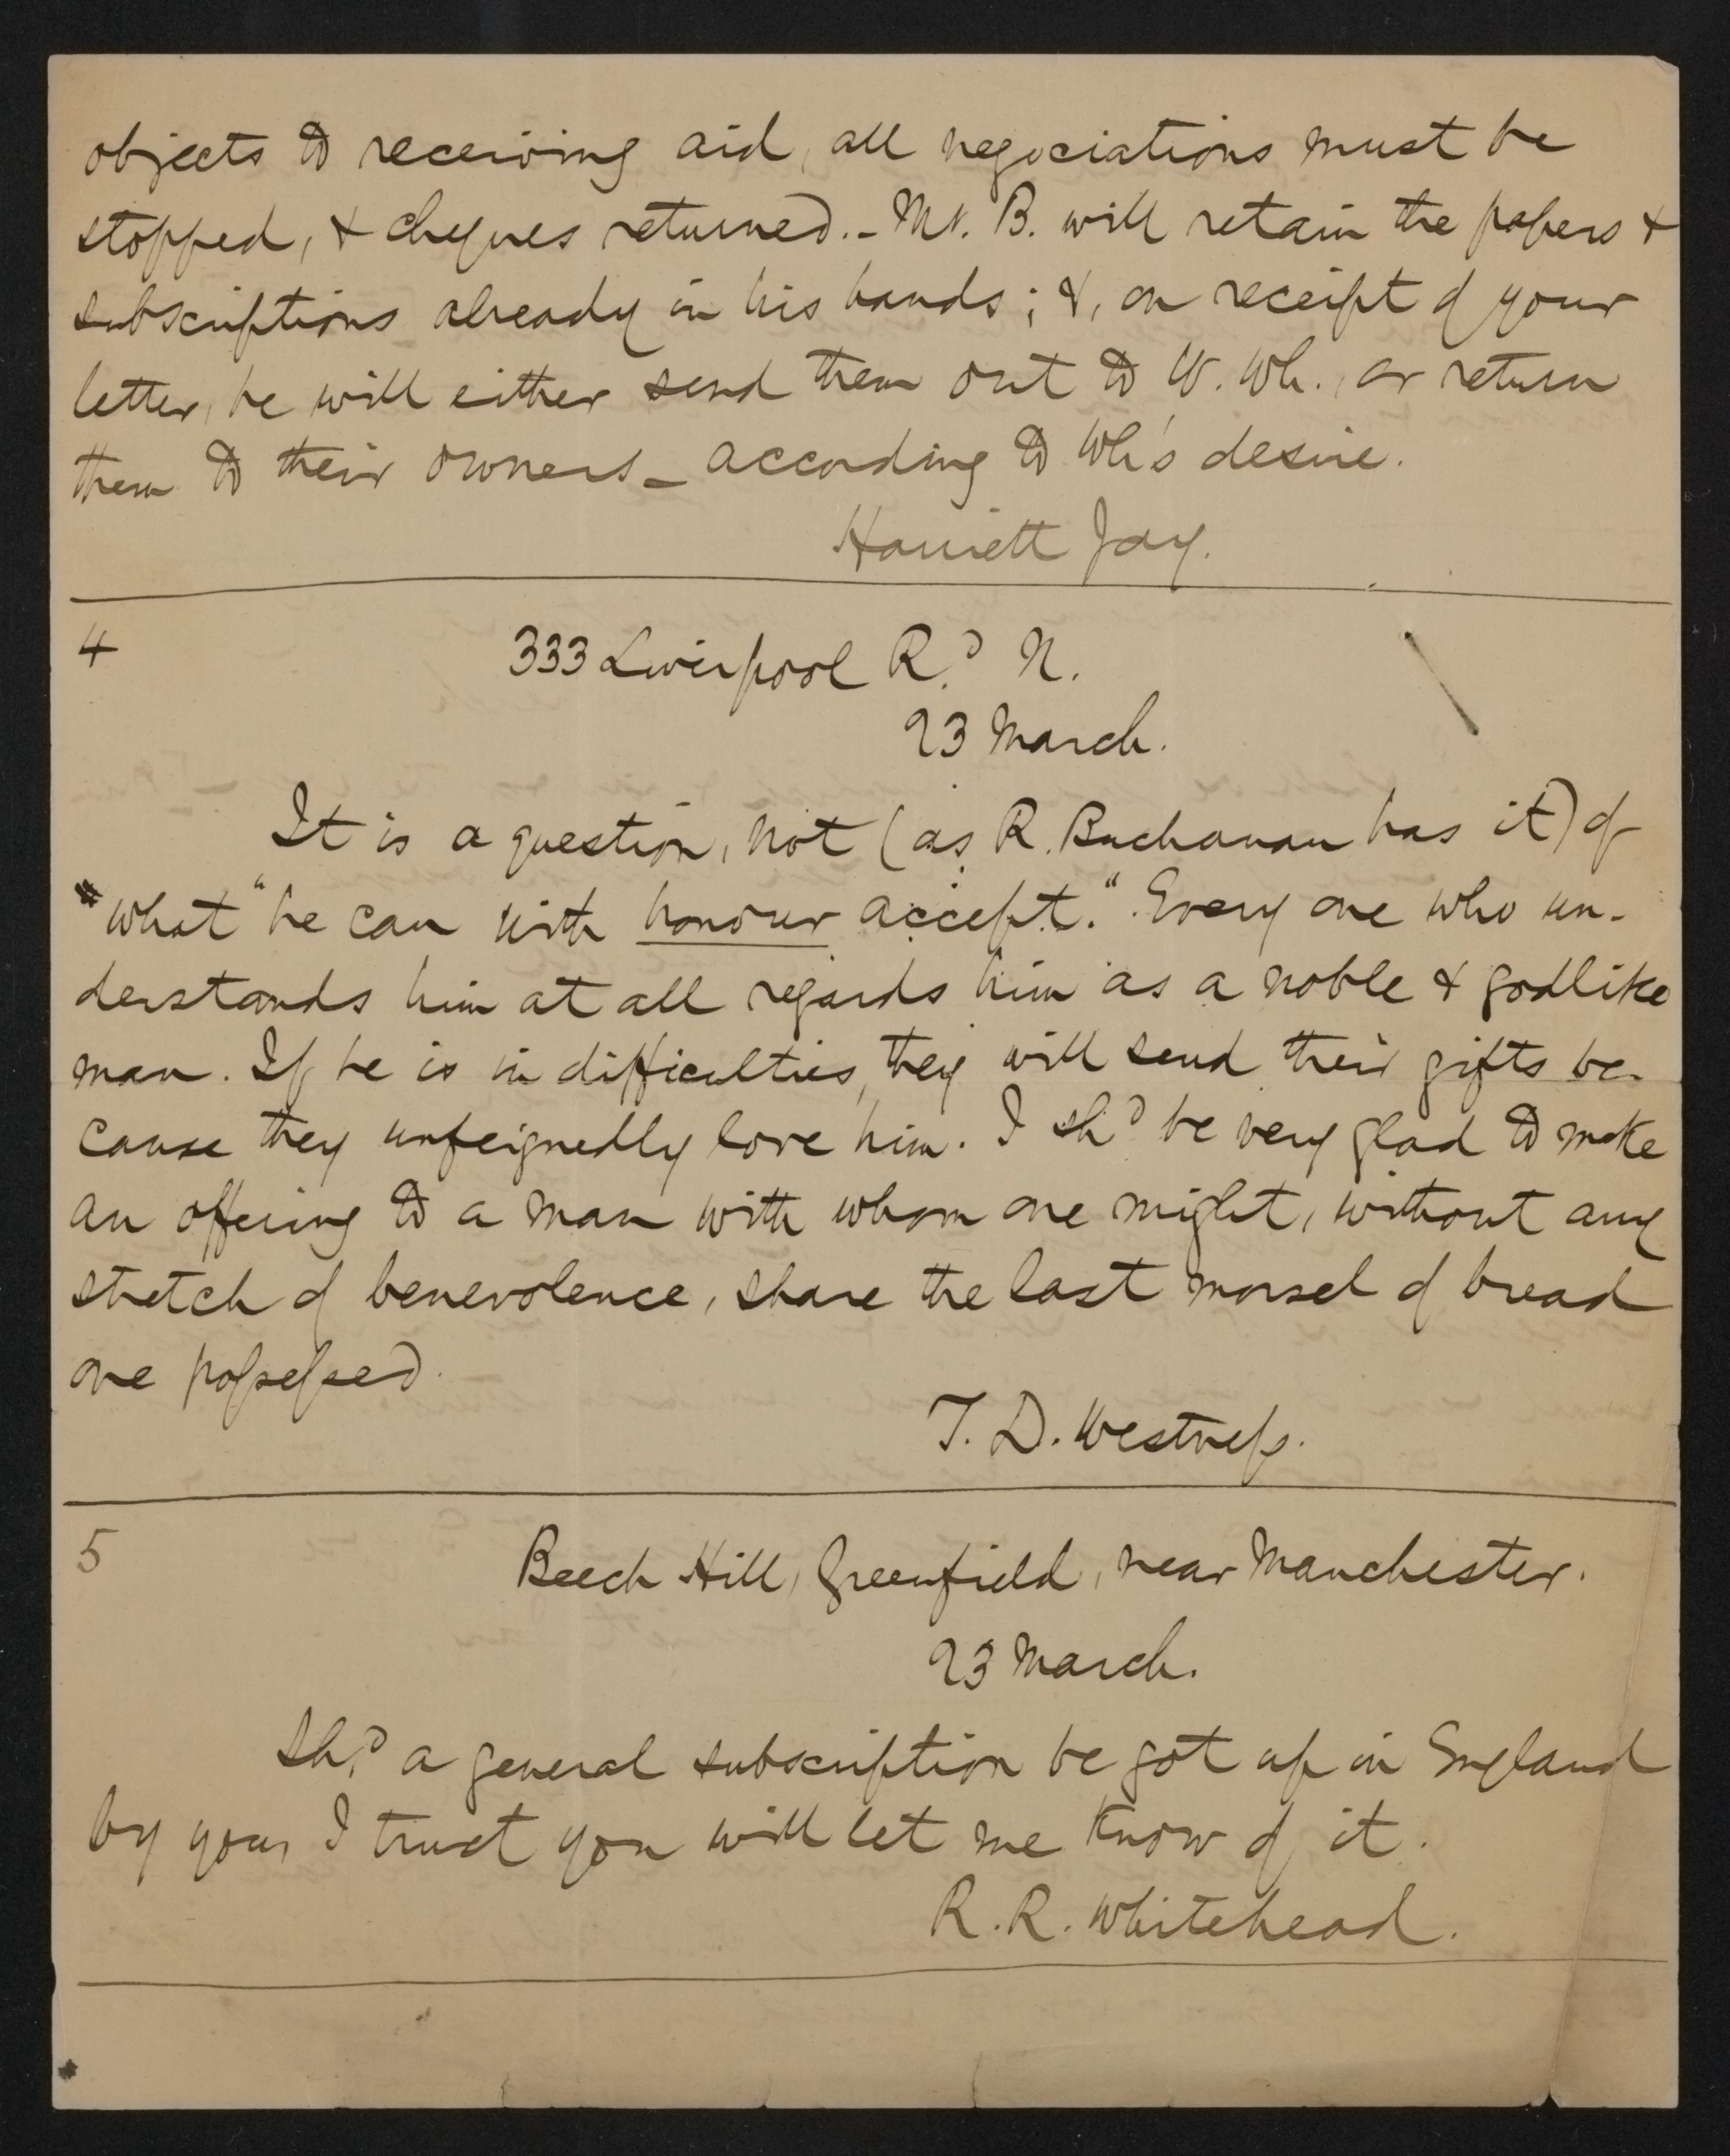 objects to receiving aid, all negociations must be
stopped, & cheques returned. - Mr. B. will retain the papers &
subscriptions already in his hands; &, on receipt of your
letter, he will either send them out to W. Wh., or return
them to their owners - according to Wh's desire.
Harriett Jay.
4
333 Liverpool Rd. N.
23 March.
It is a question, not (as R. Buchanan has it) of
"what" he can with honour accept." Every one who un-
derstands him at all regards him as a noble & godlike
man. If he is in difficulties, they will send their gifts be-
cause they unfeignedly love him. I shd be very glad to make
an offering to a man with whom one might, without any
stretch of benevolence, share the last morsel of bread
one possessed.
T. D. Westness.
5
Beech Hill, Greenfield, near Manchester.
23 March.
Shd. a general subscription be got up in England
by you, I trust you will let me know of it.
R. R. Whitehead.